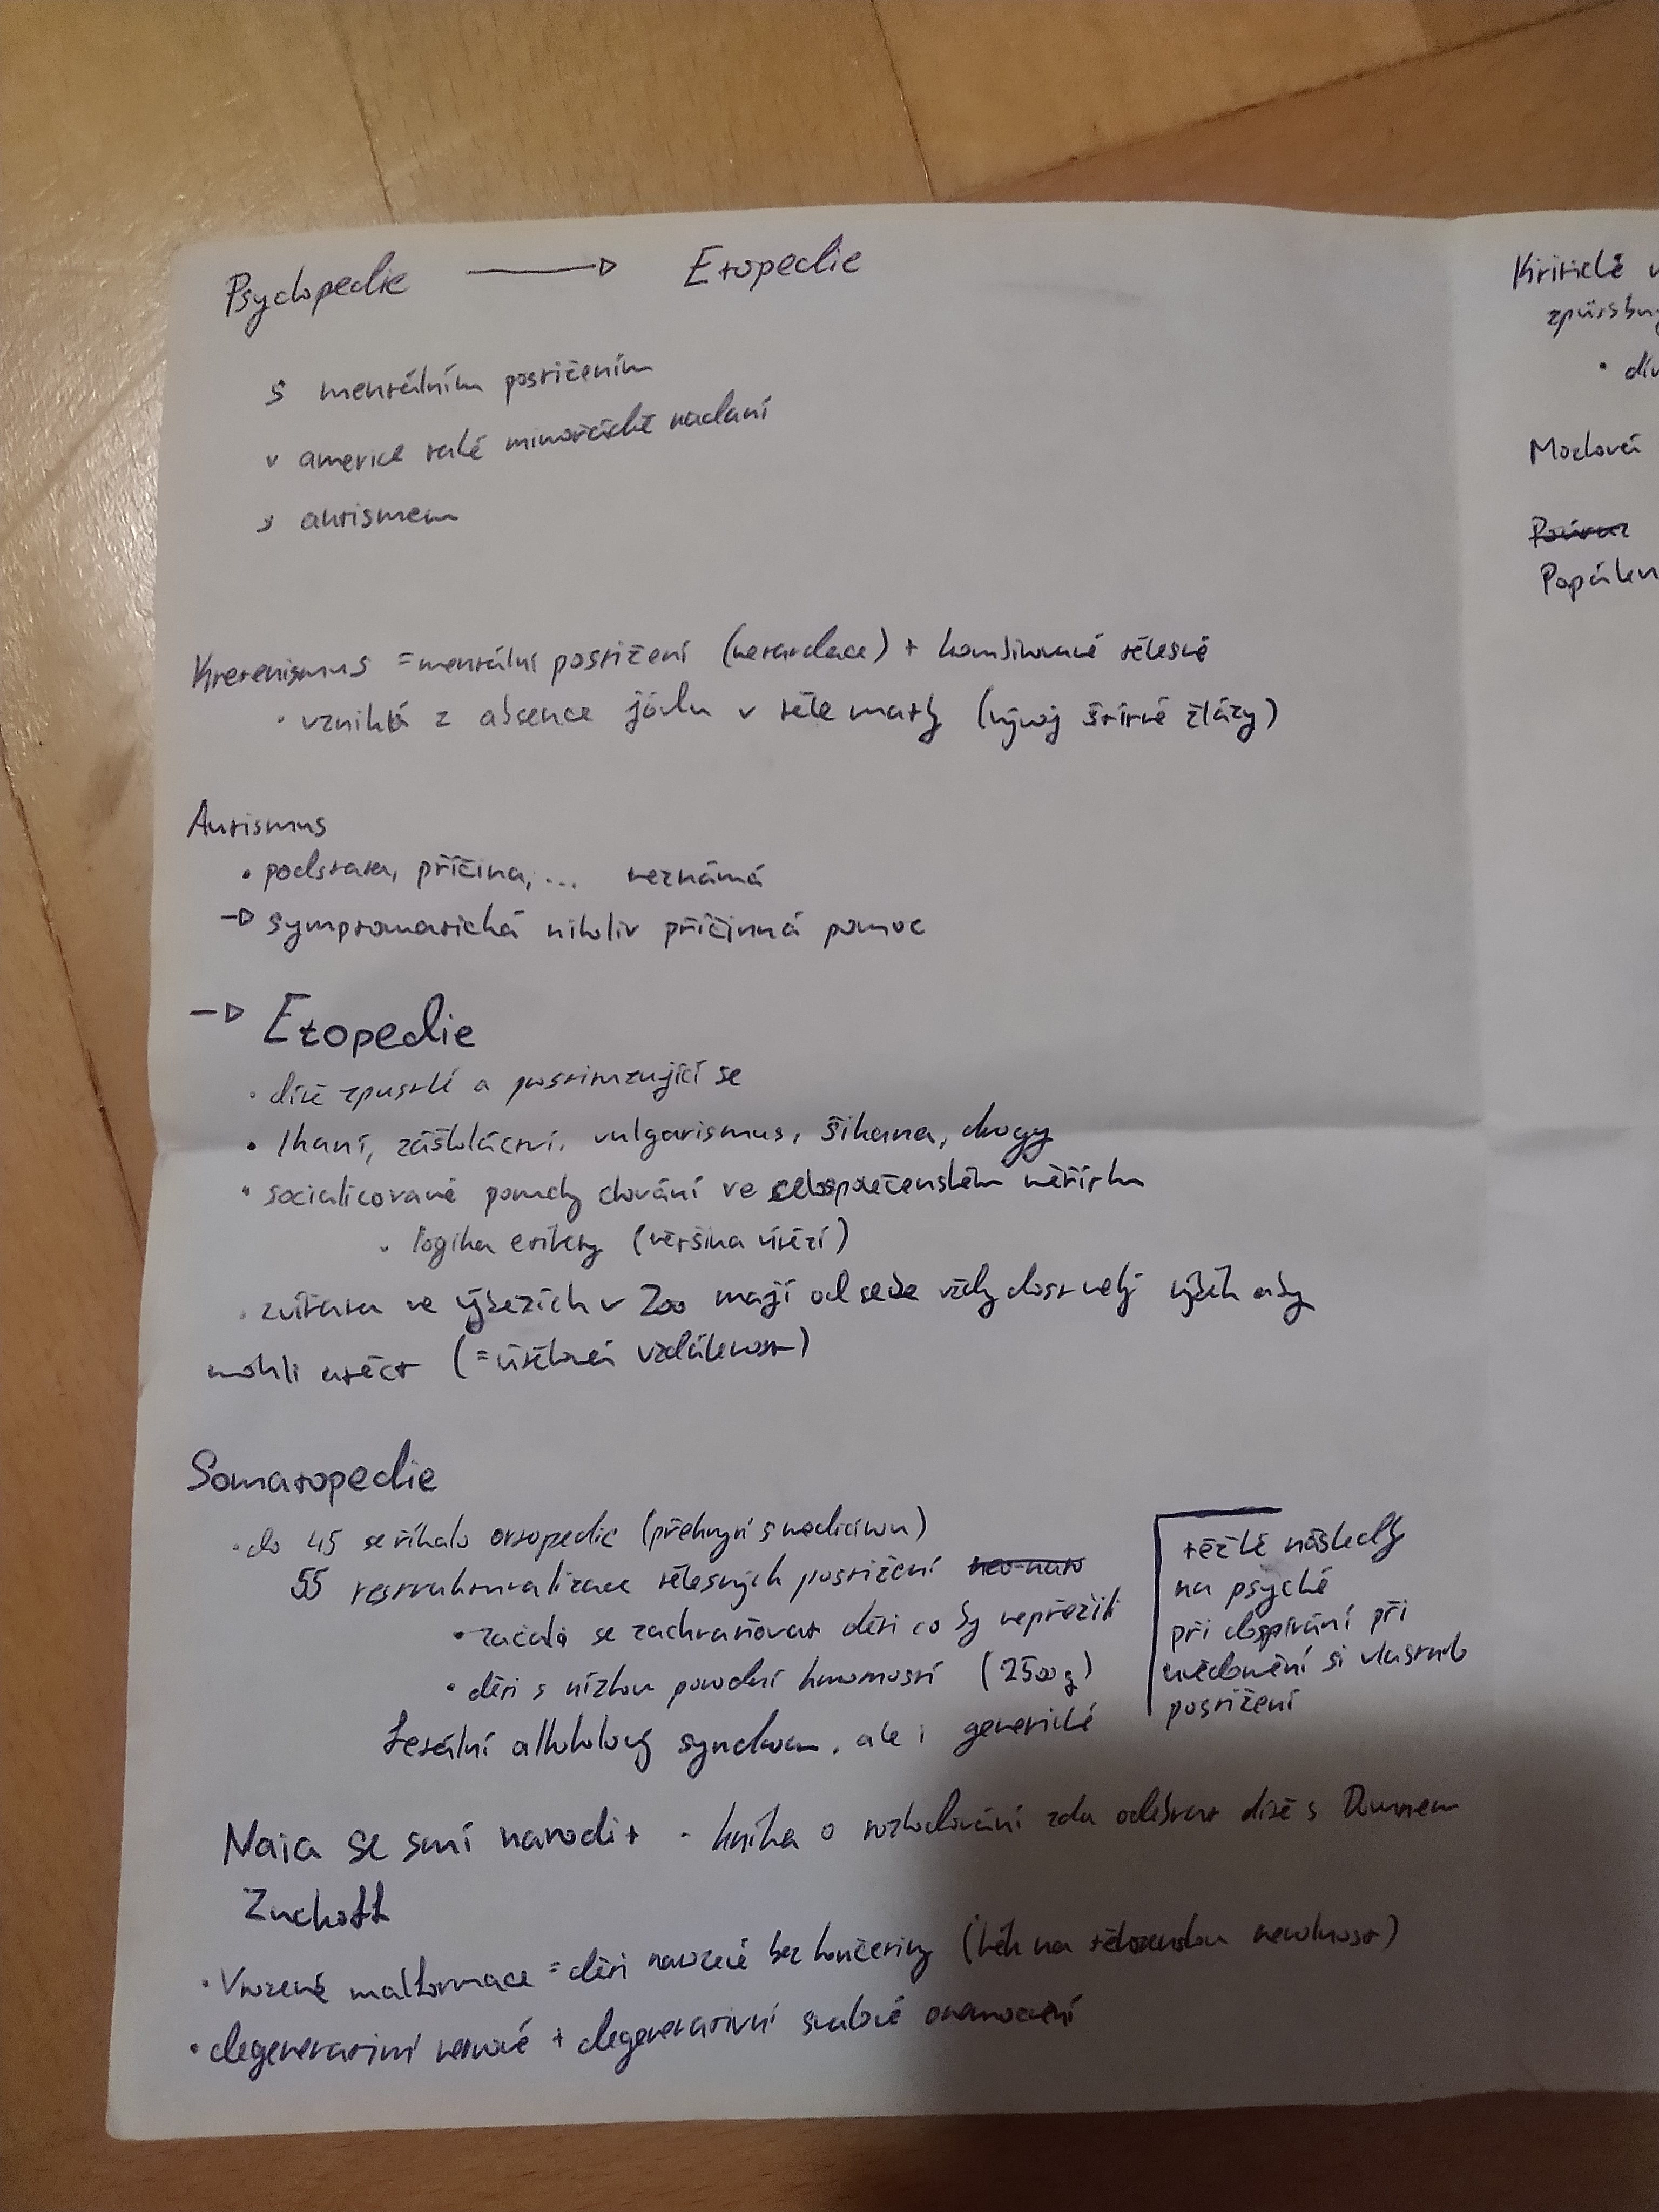 Psychopedie → Etopedie
s mentálním postižením
v americe také mimořádně nadaní
s autismem
Kretenismus = mentální postižení (retardace) + kombinované tělesné
· vzniká z absence jódu v těle matky (vývoj štítné žlázy)
Autismus
· podstata, příčina, ... neznámá
→ symptomatická nikoliv příčinná pomoc
→ Etopedie
· dítě zpustlé a postimzující se
· lhaní, záškoláctví, vulgarismus, šikana, drogy
· socialicované poruchy chování ve celospolečenském měřítku
· logika etikety (většina vítězí)
· zvířata ve výbězích v Zoo mají od sebe vždy dost velký výběh aby
mohli utéct (= útěková vzdálenost)
Somatopedie
· do 45 se říkalo ortopedie (překryvī s medicínou)
55 restrukturalizace tělesných postižení
· začalo se zachraňovat děti co by nepřežili
· děti s nízkou porodní hmotností (2500g)
fetální alkoholový syndrom, ale i genetické
těžké následky
na psyché
při dospívání při
uvědomění si vlastního
postižení
Naia se smí narodit - kniha o rozhodování zda odebrat dítě s Downem
Zuckoff
· Vrozené malformace = děti narozené bez končetiny (lék na těhotenskou nevolnost)
· degenerativní nervové + degenerativní svalové onemocnění
Kritické
· dív
Modová